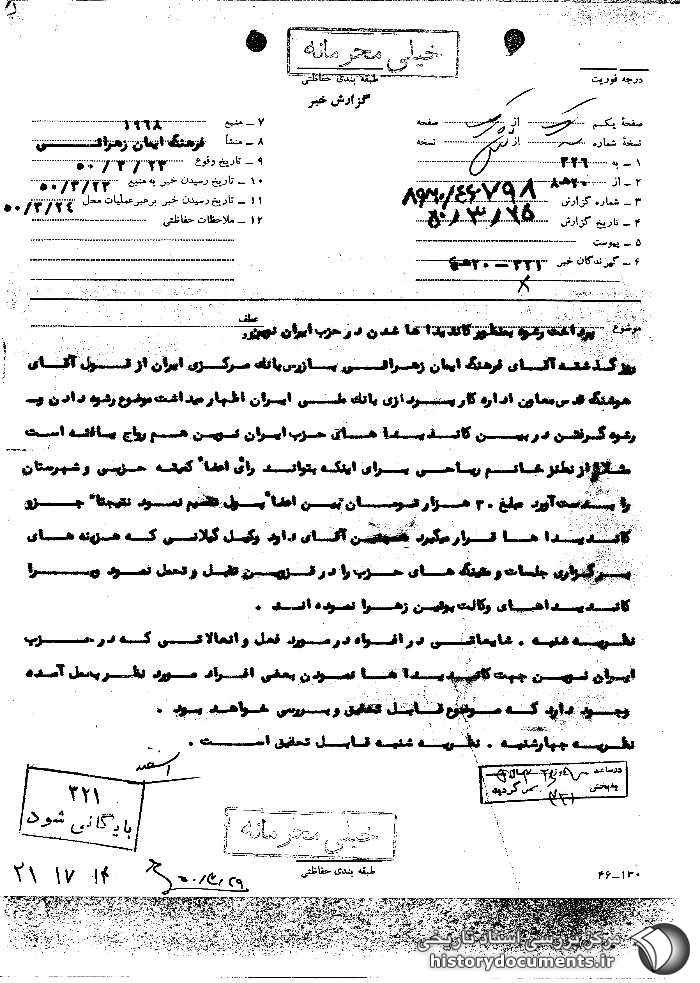 خیلی محرمانه
طبقه بندی حفاظتی
درجه فوریت
گزارش خبر
صفحهٔ یکم از صفحه
نسخهٔ شماره از نسخه
۱ ـ به ۳۲۶
۲ ـ از ۲۰ه۸
۳ ـ شماره گزارش
۴ ـ تاریخ گزارش ۵۰/۳/۲۵
۵ ـ پیوست
۶ ـ گیرندگان خبر ۳۲۱ – ۲۰
۷ ـ منبع ۱۹۶۸
۸ ـ منشأ فرهنگ ایمان زهرائی
۹ ـ تاریخ وقوع ۵۰/۳/۲۳
۱۰ ـ تاریخ رسیدن خبر به منبع ۵۰/۳/۲۳
۱۱ ـ تاریخ رسیدن خبر برهبر عملیات محل ۵۰/۳/۲۴
۱۲ ـ ملاحظات حفاظتی
موضوع پرداخت رشوه بمنظور کاندیدا شدن در حزب ایران نوین
عطف
روز گذشته آقای فرهنگ ایمان زهرائی بازرس بانک مرکزی ایران از قول آقای
هوشنگ قدس معاون اداره کارپردازی بانک ملی ایران اظهار میداشت موضوع رشوه دادن و
رشوه گرفتن در بین کاندیدا هائی حزب ایران نوین هم رواج یافته است
مثلا از نطنز خانم ریاحی برای اینکه بتواند رأی اعضاء کمیته حزبی و شهرستان
را بدست آورد مبلغ ۳۰ هزار تومان بین اعضاء پول تقسیم نمود نتیجتاً جزو
کاندیدا ها قرار میگیرد همچنین آقای داود وکیل گیلانی که هزینه های
برگزاری جلسات و متینگ های حزب را در قزوین تقبل و تحمل نمود ویرا
کاندیداهای وکالت بوئین زهرا نموده اند .
نظریه شنبه . شایعاتی در افواه در مورد فعل و انفعالاتی که در حزب
ایران نوین جهت کاندیدا ها نمودن بعضی افراد مورد نظر بعمل آمده
وجود دارد که موضوع قابل تحقیق و بررسی خواهد بود .
نظریه چهارشنبه . نظریه شنبه قابل تحقیق است .
۳۲۱
بایگانی شود
در ساعت
گردید
خیلی محرمانه
طبقه بندی حفاظتی
۲۱ ۱۷ ۱۴
۵۰/۳/۲۹
۴۶ـ۱۳۰
مرکز بررسی اسناد تاریخی
historydocuments.ir